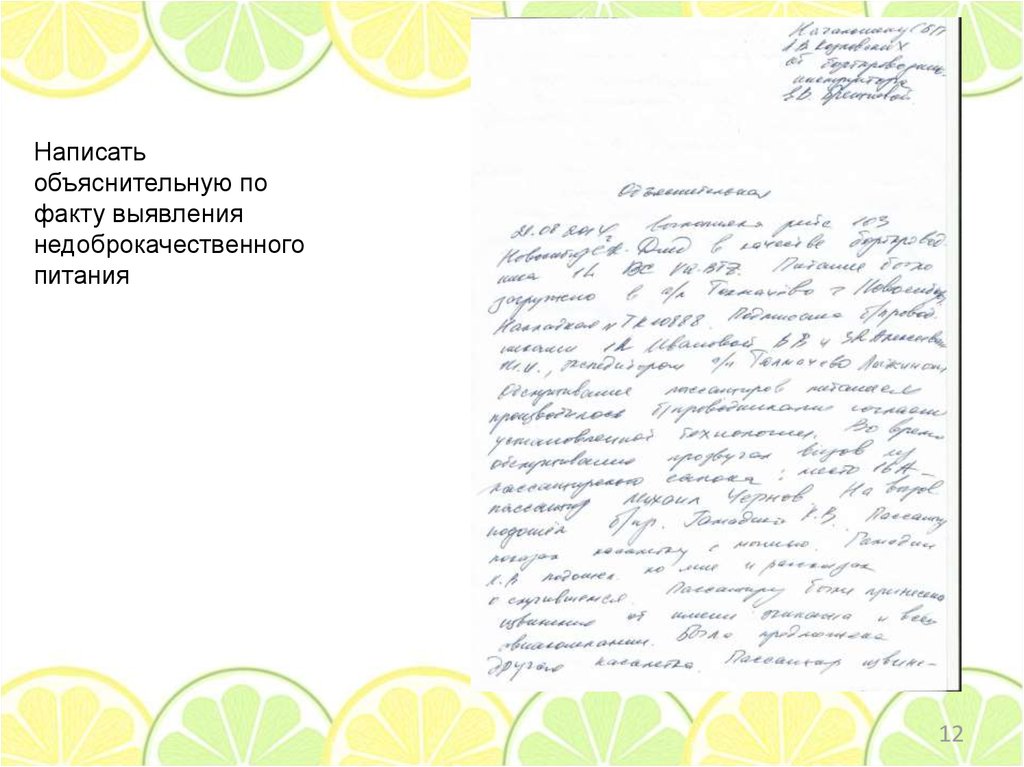 Написать
объяснительную по
факту выявления
недоброкачественного
питания
Начальнику СБП
от бортпроводника-
инструктора
Объяснительная
21.08.2014г выполняла рейс 103
в качестве бортпровод-
ника ВС Питание было
загружено в а/п Толмачёво г Новосибирск
Накладная N ТК10888. Подписана б/провод-
никами Ивановой В В и
экспедитором а/п Толмачево
Обслуживание пассажиров питанием
производилось б/проводниками согласно
установленной технологии. Во время
обслуживания прозвучал вызов из
пассажирского салона: место 16А –
пассажир Михаил Чернов. На вызов
подошёл б/пр. Пассажир
показал касалетку с
подошел ко мне и рассказал
о случившемся. Пассажиру были принесены
извинения от имени экипажа и всей
авиакомпании. Была предложена
другая касалетка. Пассажир извине-
12